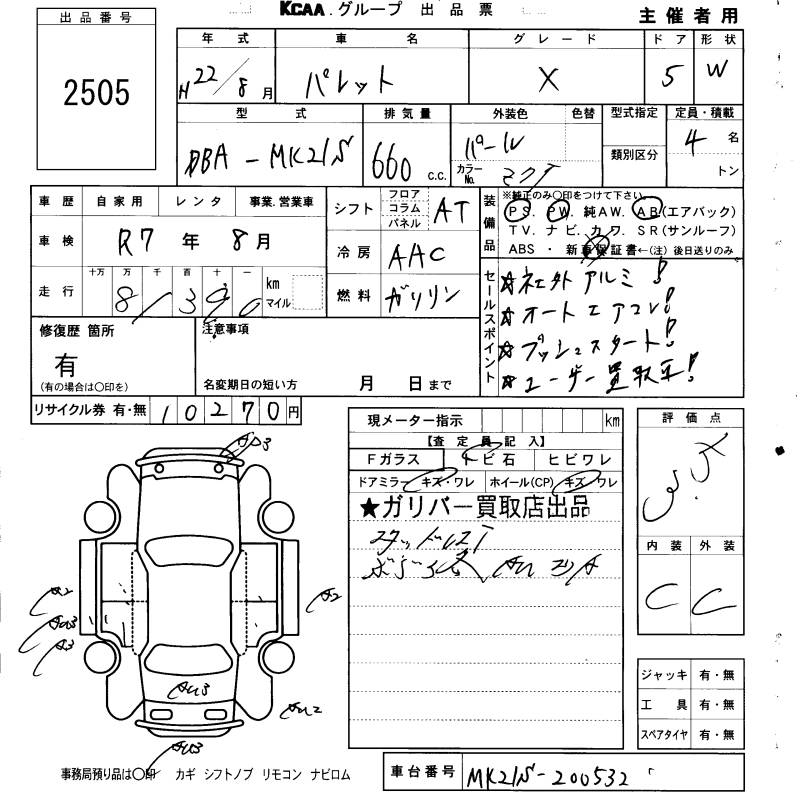 KCAA.グループ 出品票
主催者用
出品番号
2505
年式 車名 グレード ドア 形状
H22/8月 パレット X 5 W
型式 排気量 外装色 色替 型式指定 定員・積載
DBA-MK21S 660 c.c. パール 類別区分 4名
カラーNo. トン
車歴 自家用 レンタ 事業.営業車
車検 R7年8月
走行 十万 万 千 百 十 一 km マイル
シフト フロア コラム パネル AT
冷房 AAC
燃料 ガソリン
装備品 ※純正のみ〇印をつけて下さい。
PS. PW. 純AW. AB(エアバック)
TV. ナビ. カワ. SR(サンルーフ)
ABS ・ 新車保証書←(注) 後日送りのみ
セールスポイント
★社外アルミ!
★オートエアコン!
★プッシュスタート!
★ユーザー買取車!
修復歴 箇所
有
(有の場合は〇印を)
注意事項
名変期日の短い方 月 日まで
リサイクル券 有・無 10270円
現メーター指示 km
【査定員記入】
Fガラス トビ石 ヒビワレ
ドアミラー キズ・ワレ ホイール(CP) キズ ワレ
★ガリバー買取店出品
スタッドレス
評価点
3.5
内装 外装
C C
A3
A2
A3
A2
AU3
AU2
AU3
ジャッキ 有・無
工具 有・無
スペアタイヤ 有・無
事務局預り品は〇印 カギ シフトノブ リモコン ナビロム
車台番号 MK21S-200532